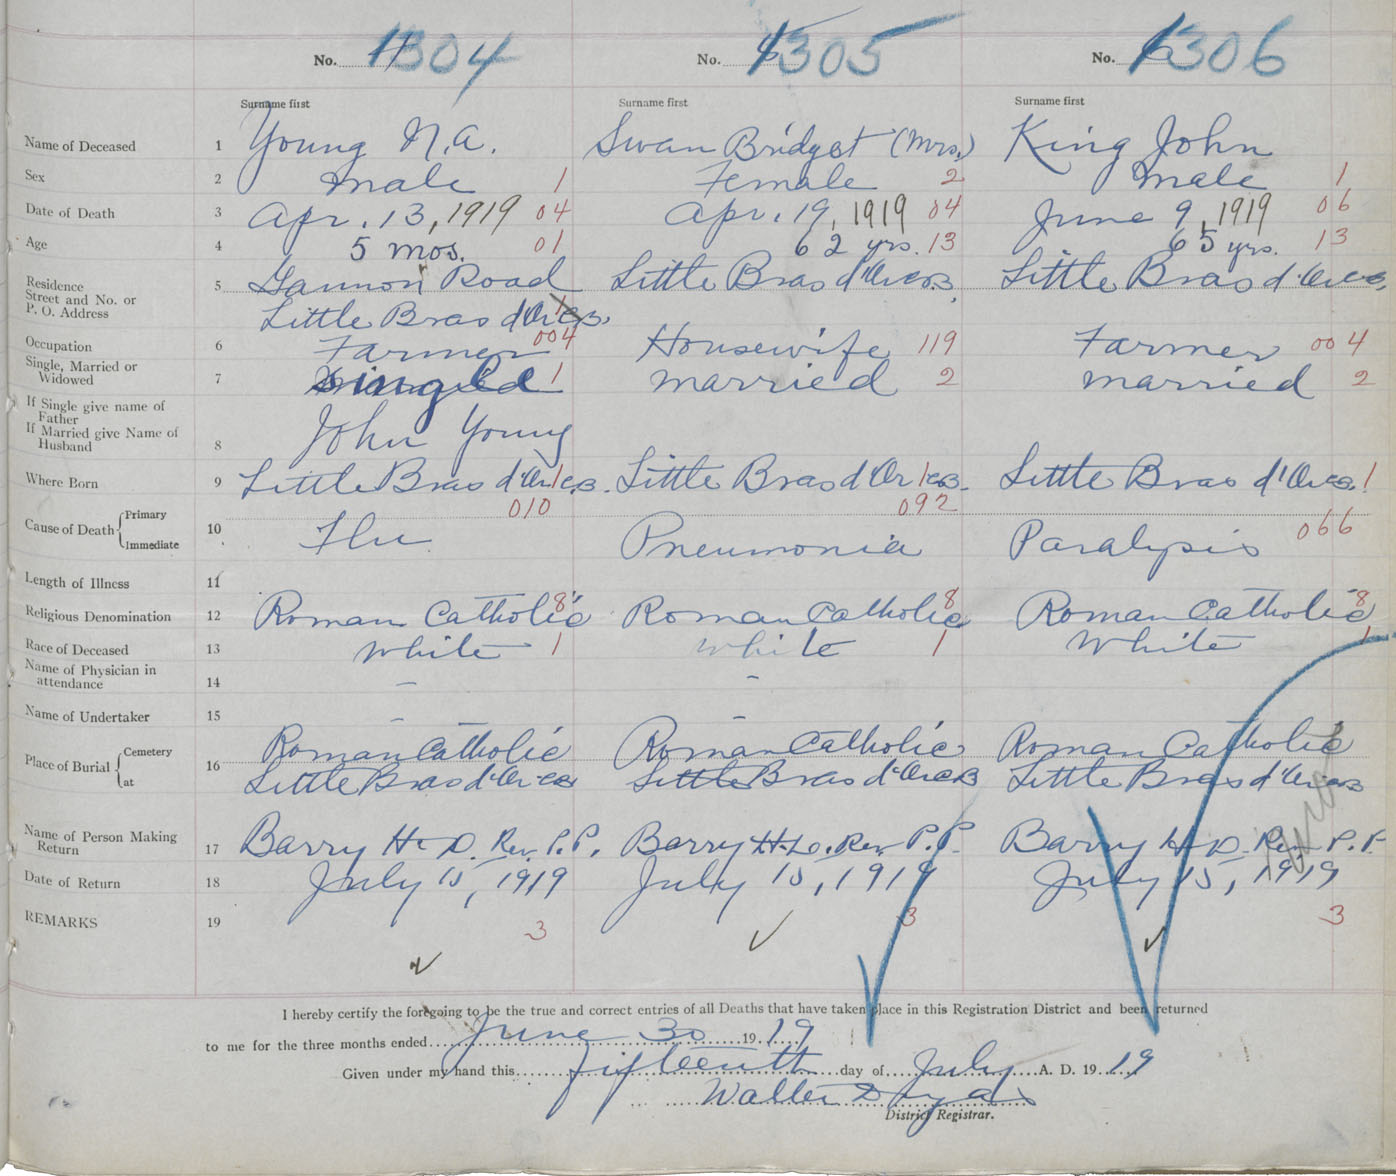 No. 304 No. 305 No. 306
Surname first Surname first Surname first
Name of Deceased 1 Young N.A. Swan Bridget (Mrs.) King John
Sex 2 Male 1 Female 2 Male 1
Date of Death 3 Apr. 13, 1919 04 Apr. 19, 1919 04 June 9, 1919 06
Age 4 5 mos. 01 62 yrs. 13 65 yrs. 13
Residence
Street and No. or
P. O. Address 5 Gannon Road Little Bras d'Or C.B. Little Bras d'Or C.B.
Little Bras d'Or C.B.
Occupation 6 Farmer 004 Housewife 119 Farmer 004
Single, Married or
Widowed 7 Single 1 Married 2 Married 2
If Single give name of
Father
If Married give Name of
Husband 8 John Young
Where Born 9 Little Bras d'Or C.B. 1 Little Bras d'Or C.B. 1 Little Bras d'Or C.B. 1
010 092
Cause of Death { Primary
Immediate 10 Flu Pneumonia Paralysis 066
Length of Illness 11
Religious Denomination 12 Roman Catholic 8 Roman Catholic 8 Roman Catholic 8
Race of Deceased 13 White 1 White 1 White 1
Name of Physician in
attendance 14 - -
Name of Undertaker 15 - -
Place of Burial { Cemetery
at 16 Roman Catholic Roman Catholic Roman Catholic
Little Bras d'Or C.B. Little Bras d'Or C.B. Little Bras d'Or C.B.
Name of Person Making
Return 17 Barry H. D. Rev. P.P. Barry H. D. Rev. P.P. Barry H. D. Rev. P.P.
Date of Return 18 July 15, 1919 July 15, 1919 July 15, 1919
REMARKS 19 3 3 3
I hereby certify the foregoing to be the true and correct entries of all Deaths that have taken place in this Registration District and been returned
to me for the three months ended June 30 19 19
Given under my hand this fifteenth day of July A. D. 19 19
Walter
District Registrar.